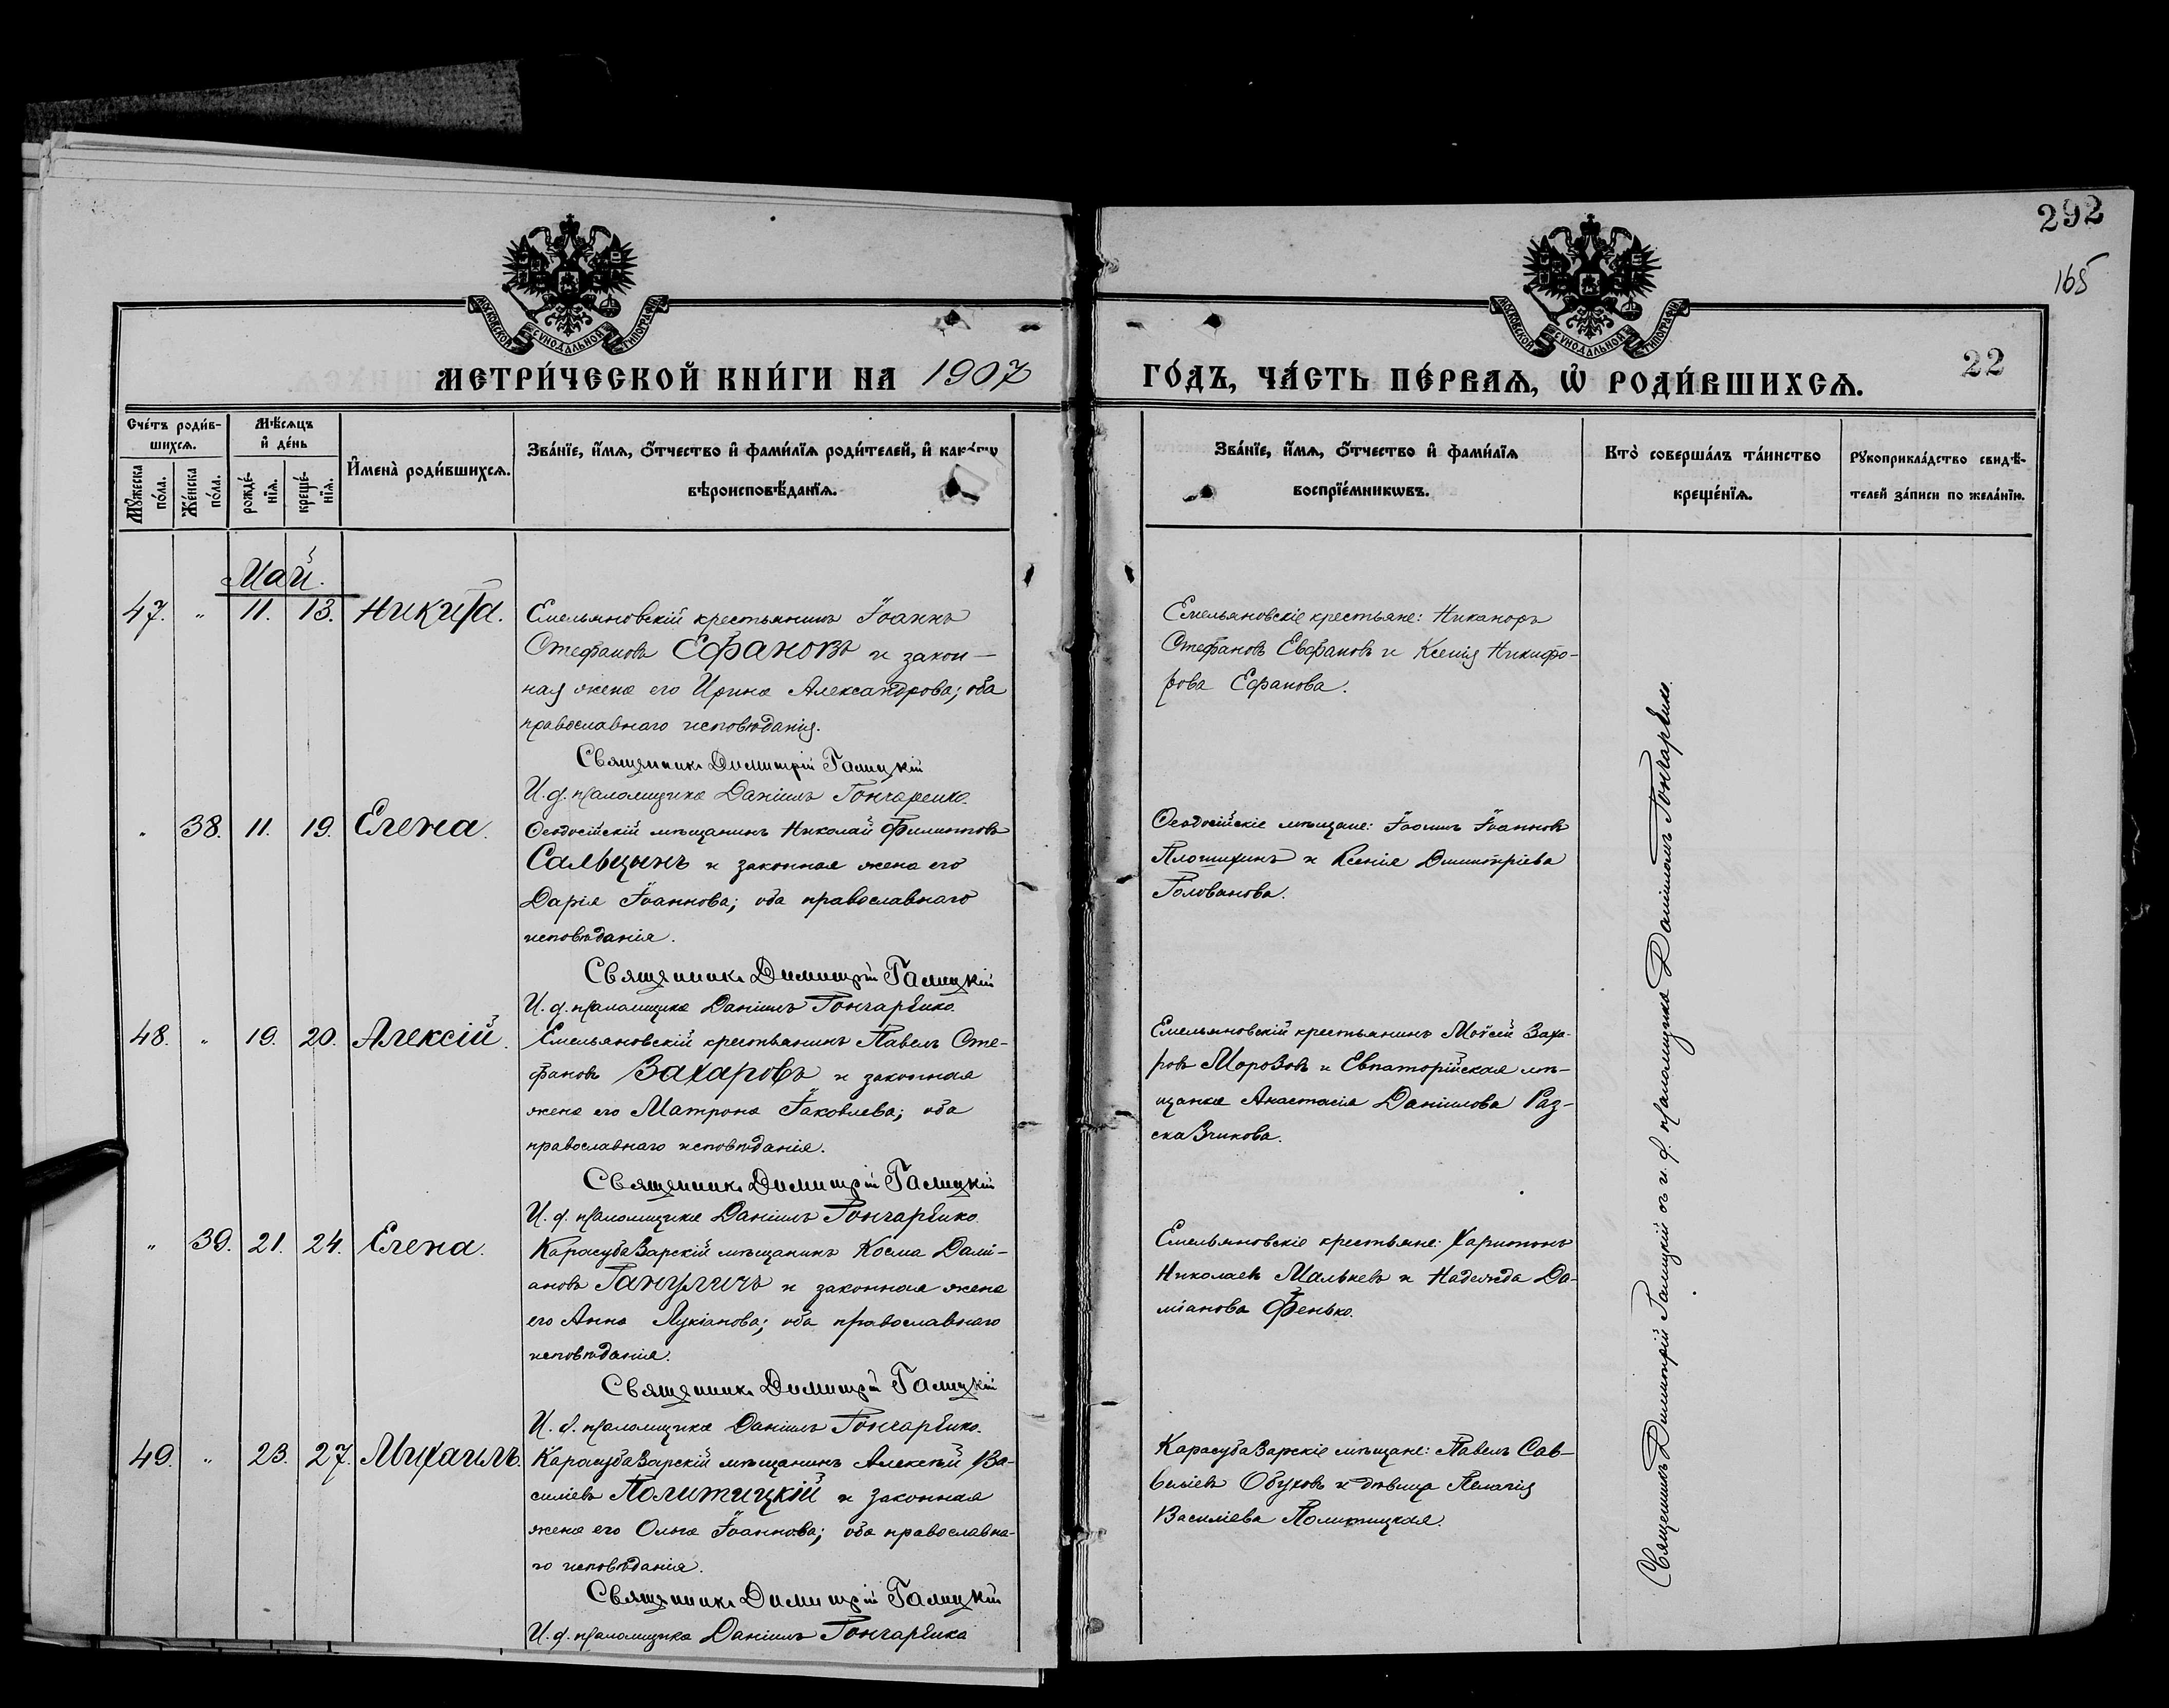 292
165
22
МОСКОВСКОЙ СѴНОДАЛЬНОЙ ТИПОГРАФІИ
МОСКОВСКОЙ СѴНОДАЛЬНОЙ ТИПОГРАФІИ
МЕТРИ́ЧЕСКОЙ КНИ́ГИ НА 1907
ГО́ДЪ, ЧА́СТЬ ПЕ́РВАѦ, Ѽ РОДИ́ВШИХСѦ.
Сче́тъ роди́в-
шихсѧ.
Мꙋ́жеска по́ла.
Же́нска по́ла.
Мѣ́сѧцъ
и҆ де́нь
рожде́-
нїѧ.
креще́-
нїѧ.
И҆мена̀ роди́вшихсѧ.
Зва́нїе, и҆́мѧ, ѻ҆́тчество и҆ фами́лїѧ роди́телей, и҆ како́гѡ
вѣроисповѣ́данїѧ.
Зва́нїе, и҆́мѧ, ѻ҆́тчество и҆ фами́лїѧ
воспрїе́мникѡвъ.
Кто̀ соверша́лъ та́инство
креще́нїѧ.
Рꙋкоприкла́дство свидѣ́-
телей за́писи по жела́нїю.
Май.
47. " 11. 13. Никита.
Емельяновскій крестьянинъ Іоаннъ
Стефановъ Ефановъ и закон-
ная жена его Ирина Александрова; оба
православнаго исповѣданія.
Священникъ Димитрій Галицкій
И. д. псаломщика Даніилъ Гончаренко.
Емельяновскіе крестьяне: Никаноръ
Стефановъ Евфановъ и Ксенія Никифо-
рова Ефанова.
" 38. 11. 19. Елена.
Ѳеодосійскій мѣщанинъ Николай Филипповъ
Сальцынъ и законная жена его
Дарія Іоаннова; оба православнаго
исповѣданія.
Священникъ Димитрій Галицкій
И. д. псаломщика Даніилъ Гончаренко.
Ѳеодосійскіе мѣщане: Іоаннъ Іоанновъ
и Ксенія Димитріева
Голованова.
48. " 19. 20. Алексій.
Емельяновскій крестьянинъ Павелъ Сте-
фановъ Захаровъ и законная
жена его Матрона Іаковлева; оба
православнаго исповѣданія.
Священникъ Димитрій Галицкій
И. д. псаломщика Даніилъ Гончаренко
Емельяновскій крестьянинъ Моѵсей Заха-
ровъ Морозовъ и Евпаторійская мѣ-
щанка Анастасія Даніилова Раз-
сказчикова.
" 39. 21. 24. Елена.
Карасубазарскій мѣщанинъ Косма Дамі-
ановъ и законная жена
его Анна Лукіанова; оба православнаго
исповѣданія.
Священникъ Димитрій Галицкій
И. д. псаломщика Даніилъ Гончаренко.
Емельяновскіе крестьяне: Харитонъ
Николаевъ Мальневъ и Надежда Да-
міанова Фенько.
49. " 23. 27. Михаилъ.
Карасубазарскій мѣщанинъ Алексѣй Ва-
силіевъ Политицкій и законная
жена его Ольга Іоаннова; оба православна-
го исповѣданія.
Священникъ Димитрій Галицкій
И. д. псаломщика Даніилъ Гончаренко
Карасубазарскіе мѣщане: Павелъ Сав-
веліевъ Обуховъ и дѣвица Пелагія
Василіева Политицкая.
Священникъ Димитрій Галицкій съ и. д. псаломщика Даніиломъ Гончаренкомъ.